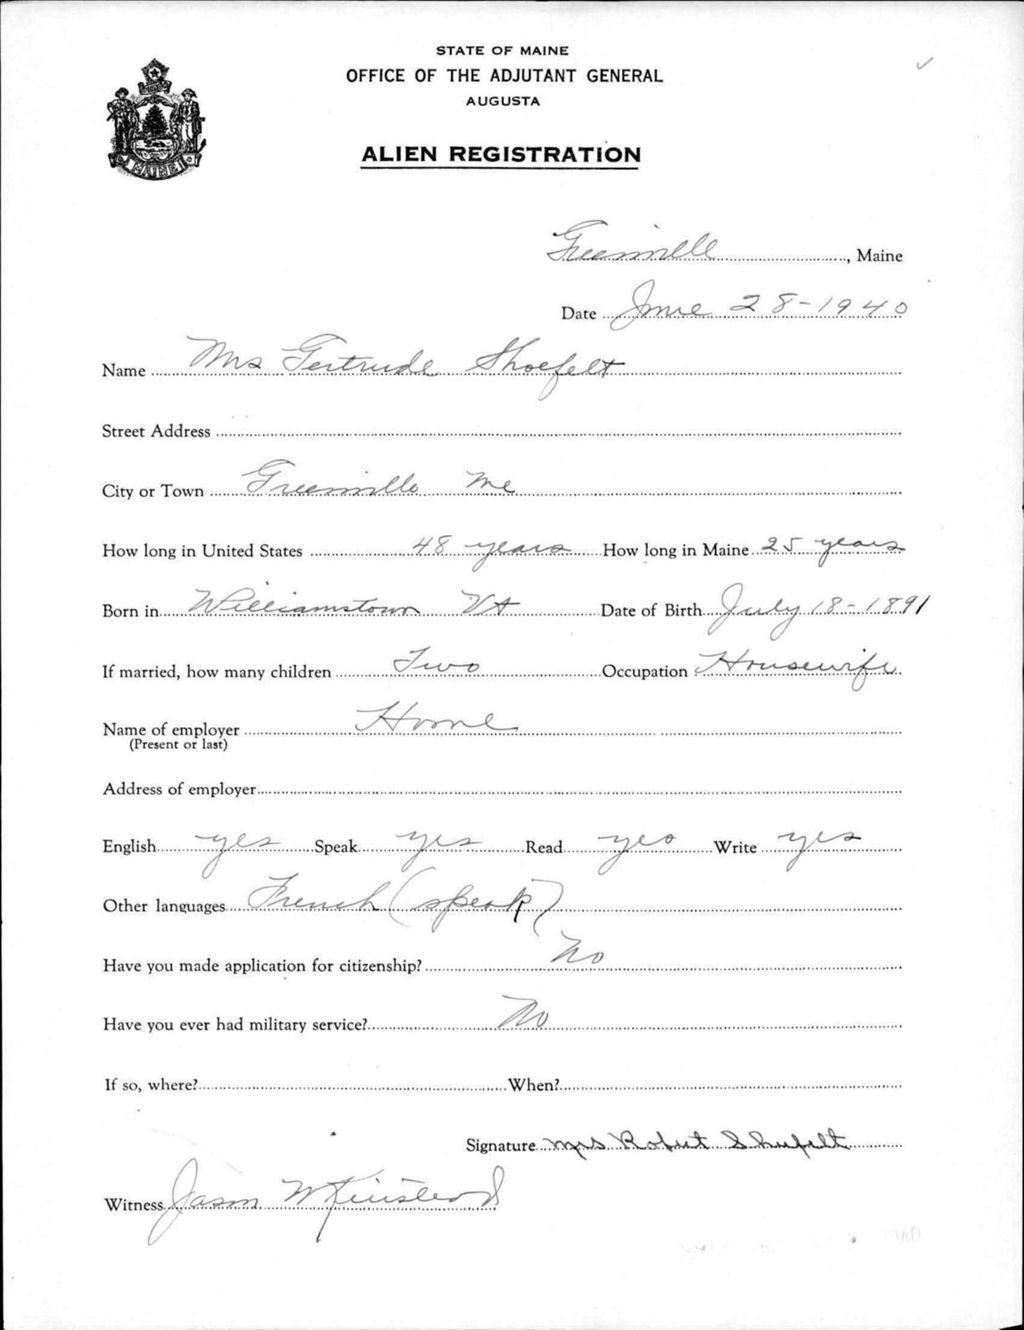 STATE OF MAINE
OFFICE OF THE ADJUTANT GENERAL
AUGUSTA
ALIEN REGISTRATION
MAINE
Greenville, Maine
Date June 28-1940
Name Mrs Gertrude Shoefelt
Street Address
City or Town Greenville Me
How long in United States 48 years How long in Maine 25 years
Born in Williamstown Vt Date of Birth July 18-1891
If married, how many children Two Occupation Housewife
Name of employer Home
(Present or last)
Address of employer
English yes Speak yes Read yes Write yes
Other languages French (speak)
Have you made application for citizenship? No
Have you ever had military service? No
If so, where? When?
Signature Mrs Robert Shufelt
Witness Jason W